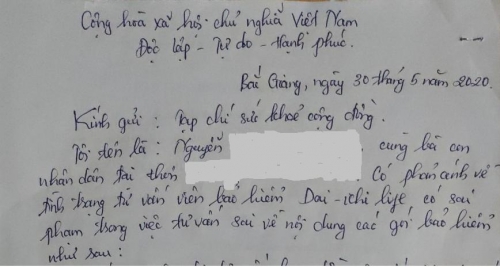 Cộng hòa xã hội chủ nghĩa Việt Nam
Độc lập - Tự do - Hạnh phúc.
Bắc Giang, ngày 30 tháng 5 năm 2020.
Kính gửi : Tạp chí sức khoẻ cộng đồng.
Tôi tên là : Nguyễn cùng bà con
nhân dân tại thôn Có phản ánh về
tình trạng tư vấn viên bảo hiểm Dai-ichi life có sai
phạm trong việc tư vấn sai về nội dung các gói bảo hiểm
như sau :